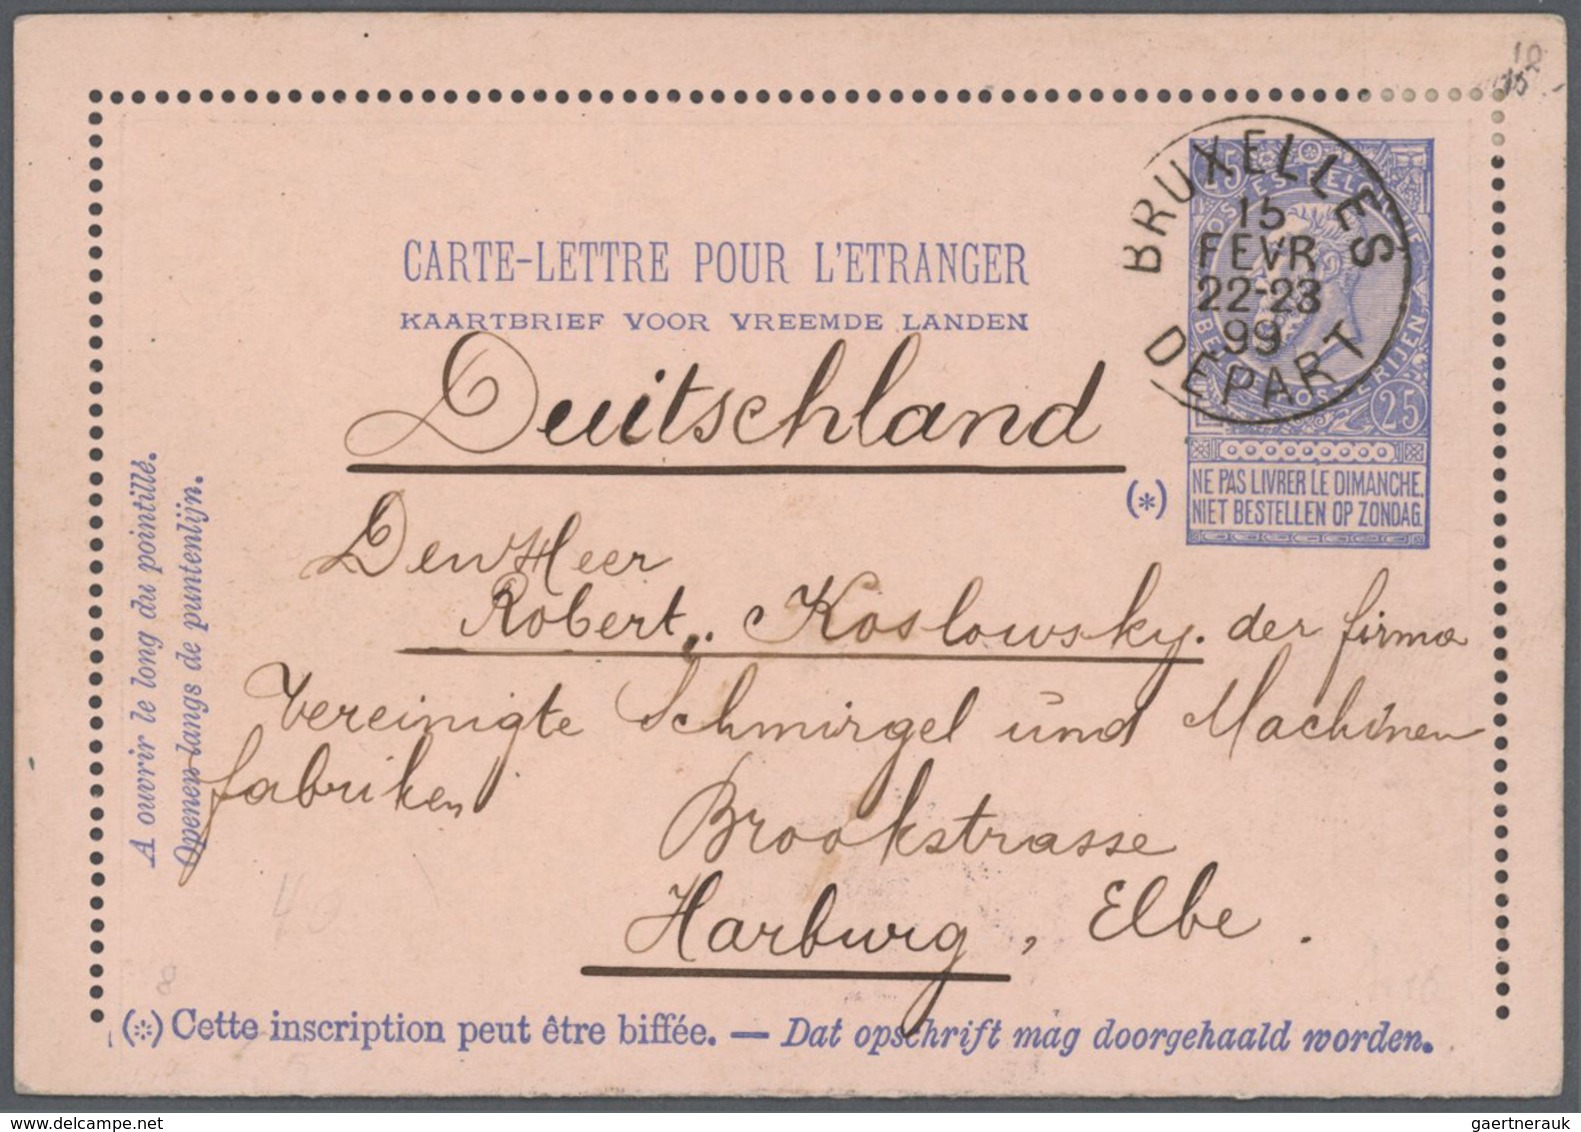 CARTE-LETTRE POUR L'ETRANGER
KAARTBRIEF VOOR VREEMDE LANDEN
BRUXELLES
15
FEVR
22-23
99
DEPART
25
25
NE PAS LIVRER LE DIMANCHE.
NIET BESTELLEN OP ZONDAG.
(*)
Duitschland
Den Heer
Robert Koslowsky. der firma
Vereinigte Schmirgel und Machinen
fabriken
Brookstrasse
Harburg, Elbe.
A ouvrir le long du pointillé.
Openen langs de puntenlijn.
40
8
(*) Cette inscription peut être biffée. — Dat opschrift mag doorgehaald worden.
gaertnerauk